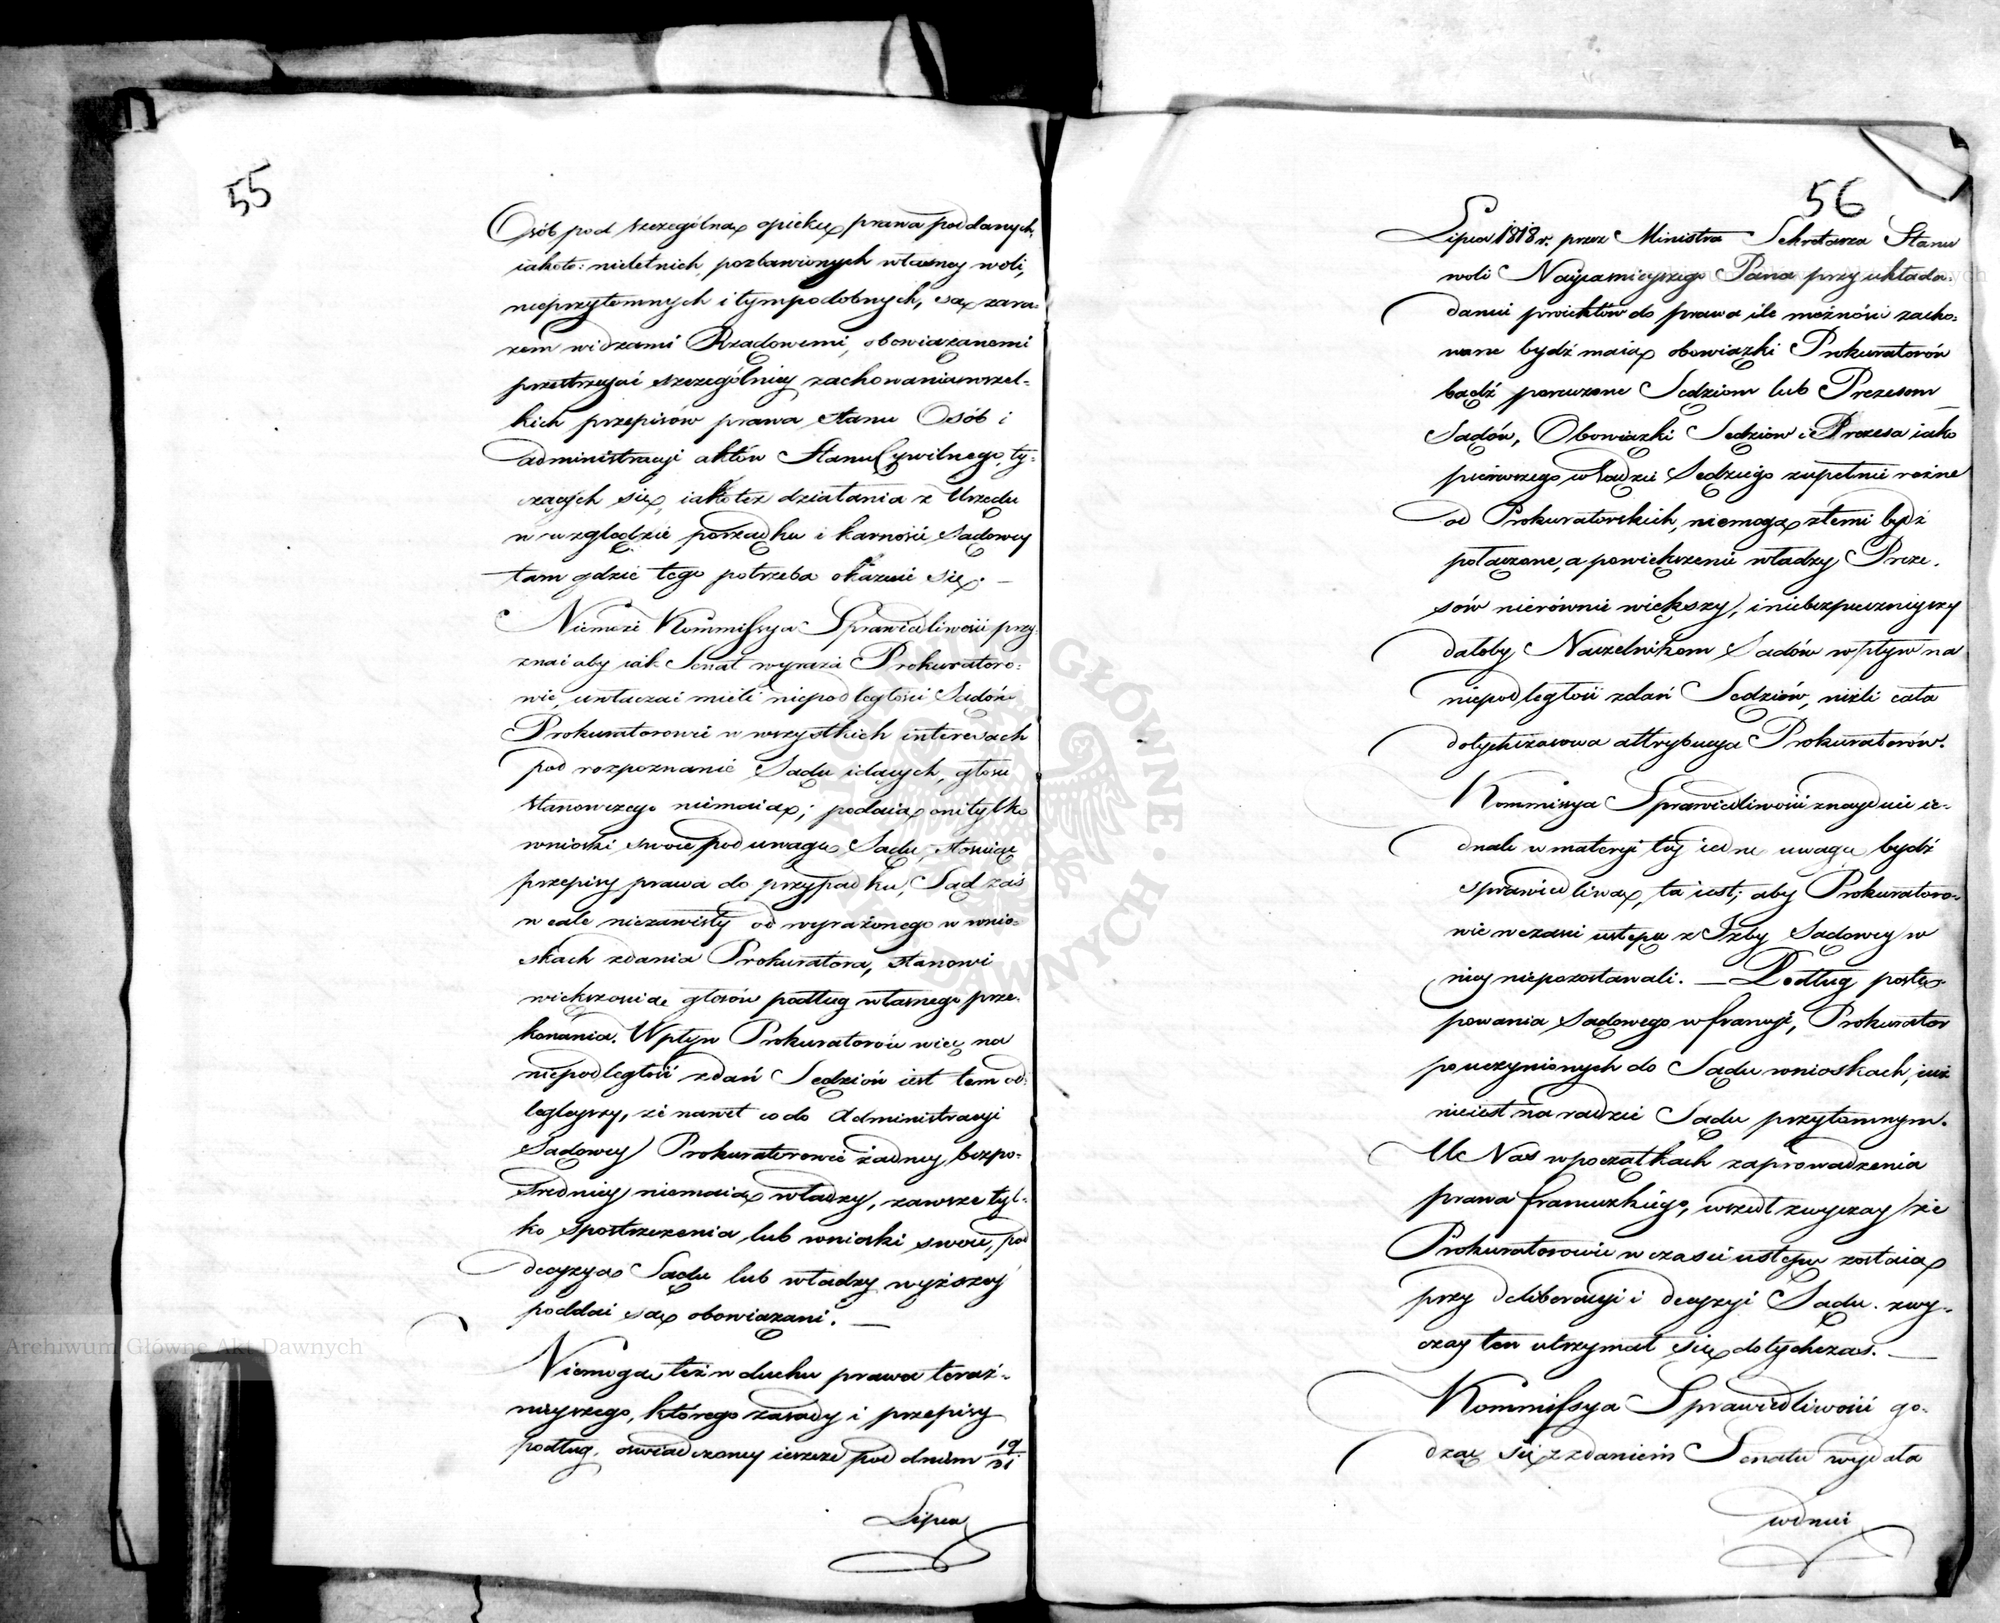 55
Osób pod szczególną opieką prawa poddanych,
iakoto: nieletnich, pozbawionych własney woli,
nieprzytomnych i tympodobnych, są zara-
zem widzami Rządowemi, obowiązanemi
przestrzegać szczególniey zachowania wszel-
kich przepisów prawa stanu Osób i
administracyi aktów Stanu Cywilnego, ty-
czących się, iakoteż działania z Urzędu
w względzie porządku i karności Sądowey
tam gdzie tego potrzeba okaże się. —
Niemoże Kommissya Sprawiedliwości przy-
znać aby iak Senat wyraża Prokuratoro-
wie, uwłaczać mieli niepodległości Sądów
Prokuratorowie w wszystkich interesach
pod rozpoznanie Sądu idących, głosu
stanowczego niemaią; podaią oni tylko
wnioski swoie pod uwagę Sądu, stosuiąc
przepisy prawa do przypadku, Sąd zaś
w cale niezawisły od wyrażonego w wnio-
skach zdania Prokuratora, stanowi
większością głosów podług własnego prze-
konania. Wpływ Prokuratorów więc na
niepodległość zdań Sędziów iest tem od-
legleyszy, że nawet co do Administracyi
Sądowey Prokuratorowie żadney bezpo-
średniey niemaią władzy, zawsze tyl-
ko spostrzeżenia lub wnioski swoie, pod
decyzyą Sądu lub władzy wyższey
poddać są obowiązani. —
Niemogą też w duchu prawa teraź-
nieyszego, którego zasady i przepisy
podług oświadczoney ieszcze pod dniem 19/31
Lipca
56
Lipca 1818 r. przez Ministra Sekretarza Stanu
woli Nayiaśnieyszego Pana przy układa-
daniu proiektów do prawa ile możności zacho-
wane bydź maią obowiązki Prokuratorów
bądź poruczone Sędziom lub Prezesom
Sądów, Obowiązki Sędziów i Prezesa iako
pierwszego w Sądzie Sędziego zupełnie rożne
od Prokuratorskich, niemogą z temi bydź
połączone, a powiększenie władzy Preze-
sów nierównie większy, i niebezpiecznieyszy
dałoby Naczelnikom Sądów wpływ na
niepodległość zdań Sędziów, niżli cała
dotychczasowa attrybucya Prokuratorów.
Kommissya Sprawiedliwości znayduie ie-
dnak w materyi tey iedną uwagę bydź
sprawiedliwą, ta iest; aby Prokuratoro-
wie w czasie ustępu z Izby Sądowey w
niey niepozostawali. — Podług postę-
powania Sądowego w francyi, Prokurator
po uczynionych do Sądu wnioskach, iuż
nieiest na radzie Sądu przytomnym.
U Nas w początkach zaprowadzenia
prawa francuzkiego, wszedł zwyczay że
Prokuratorowie w czasie ustępu zostaią
przy deliberacyi i decyzyi Sądu. zwy-
czay ten utrzymał się dotychczas. —
Kommissya Sprawiedliwości go-
dząc się z zdaniem Senatu wydała
w dniu
Archiwum Główne Akt Dawnych